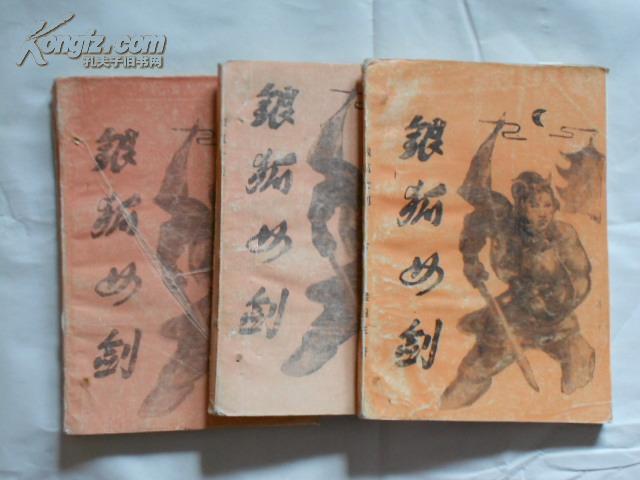 Kongfz.com
孔夫子旧书网
銀狐女剑
銀狐女剑
銀狐女剑